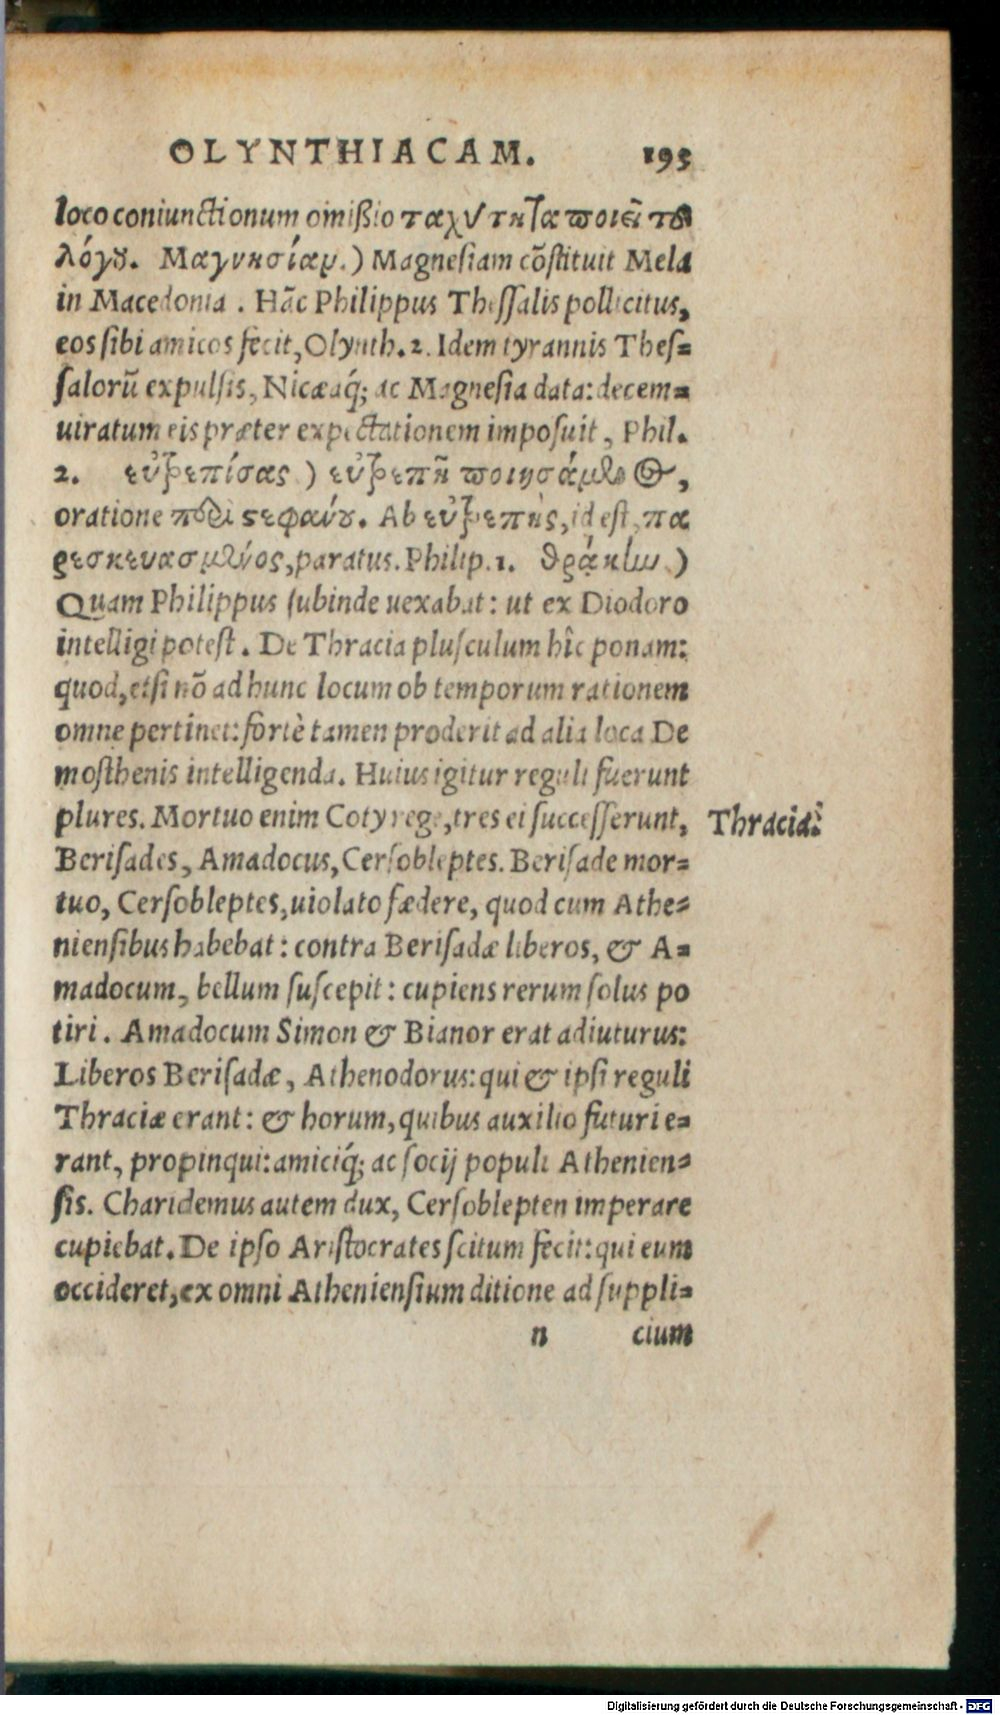 OLYNTHIACAM. 195
loco coniunctionum omißio ταχύτητα ποιεῖ τοῦ
λόγου. Μαγνησίαν.) Magnesiam cōstituit Mela
in Macedonia. Hāc Philippus Thessalis pollicitus,
eos sibi amicos fecit, Olynth. 2. Idem tyrannis Thes=
salorū expulsis, Nicæaq́; ac Magnesia data: decem=
uiratum eis præter expectationem imposuit, Phil.
2. εὐτρεπίσας) εὐτρεπῆ ποιησάμενος,
oratione περὶ στεφάνου. Ab εὐτρεπὴς, id est, πα
ρεσκευασμένος, paratus. Philip. 1. Θρᾴκην.)
Quam Philippus subinde uexabat: ut ex Diodoro
intelligi potest. De Thracia plusculum hîc ponam:
quod, etsi nō ad hunc locum ob temporum rationem
omne pertinet: fortè tamen proderit ad alia loca De
mosthenis intelligenda. Huius igitur reguli fuerunt
plures. Mortuo enim Coty rege, tres ei successerunt,
Thracia.
Berisades, Amadocus, Cersobleptes. Berisade mor=
tuo, Cersobleptes, uiolato fœdere, quod cum Athe=
niensibus habebat: contra Berisadæ liberos, & A=
madocum, bellum suscepit: cupiens rerum solus po
tiri. Amadocum Simon & Bianor erat adiuturus:
Liberos Berisadæ, Athenodorus: qui & ipsi reguli
Thraciæ erant: & horum, quibus auxilio futuri e=
rant, propinqui: amiciq́; ac socij populi Athenien=
sis. Charidemus autem dux, Cersoblepten imperare
cupiebat. De ipso Aristocrates scitum fecit: qui eum
occideret, ex omni Atheniensium ditione ad suppli=
n cium
Digitalisierung gefördert durch die Deutsche Forschungsgemeinschaft - DFG